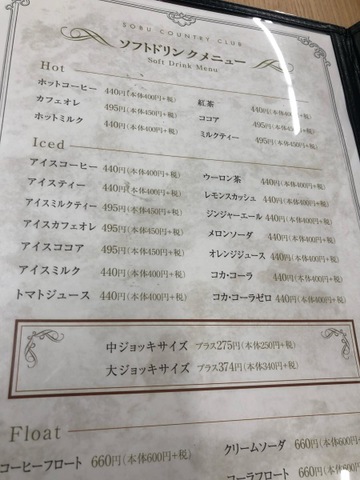 SOBU COUNTRY CLUB
ソフトドリンクメニュー
Soft Drink Menu
Hot
ホットコーヒー 440円(本体400円+税)
カフェオレ 495円(本体450円+税)
ホットミルク 440円(本体400円+税)
紅茶 440円(本体400円+税)
ココア 495円(本体450円+税)
ミルクティー 495円(本体450円+税)
Iced
アイスコーヒー 440円(本体400円+税)
アイスティー 440円(本体400円+税)
アイスミルクティー 495円(本体450円+税)
アイスカフェオレ 495円(本体450円+税)
アイスココア 495円(本体450円+税)
アイスミルク 440円(本体400円+税)
トマトジュース 440円(本体400円+税)
ウーロン茶 440円(本体400円+税)
レモンスカッシュ 440円(本体400円+税)
ジンジャーエール 440円(本体400円+税)
メロンソーダ 440円(本体400円+税)
オレンジジュース 440円(本体400円+税)
コカ・コーラ 440円(本体400円+税)
コカ・コーラゼロ 440円(本体400円+税)
中ジョッキサイズ プラス275円(本体250円+税)
大ジョッキサイズ プラス374円(本体340円+税)
Float
コーヒーフロート 660円(本体600円+税)
クリームソーダ 660円(本体600円
コーラフロート 660円(本体600